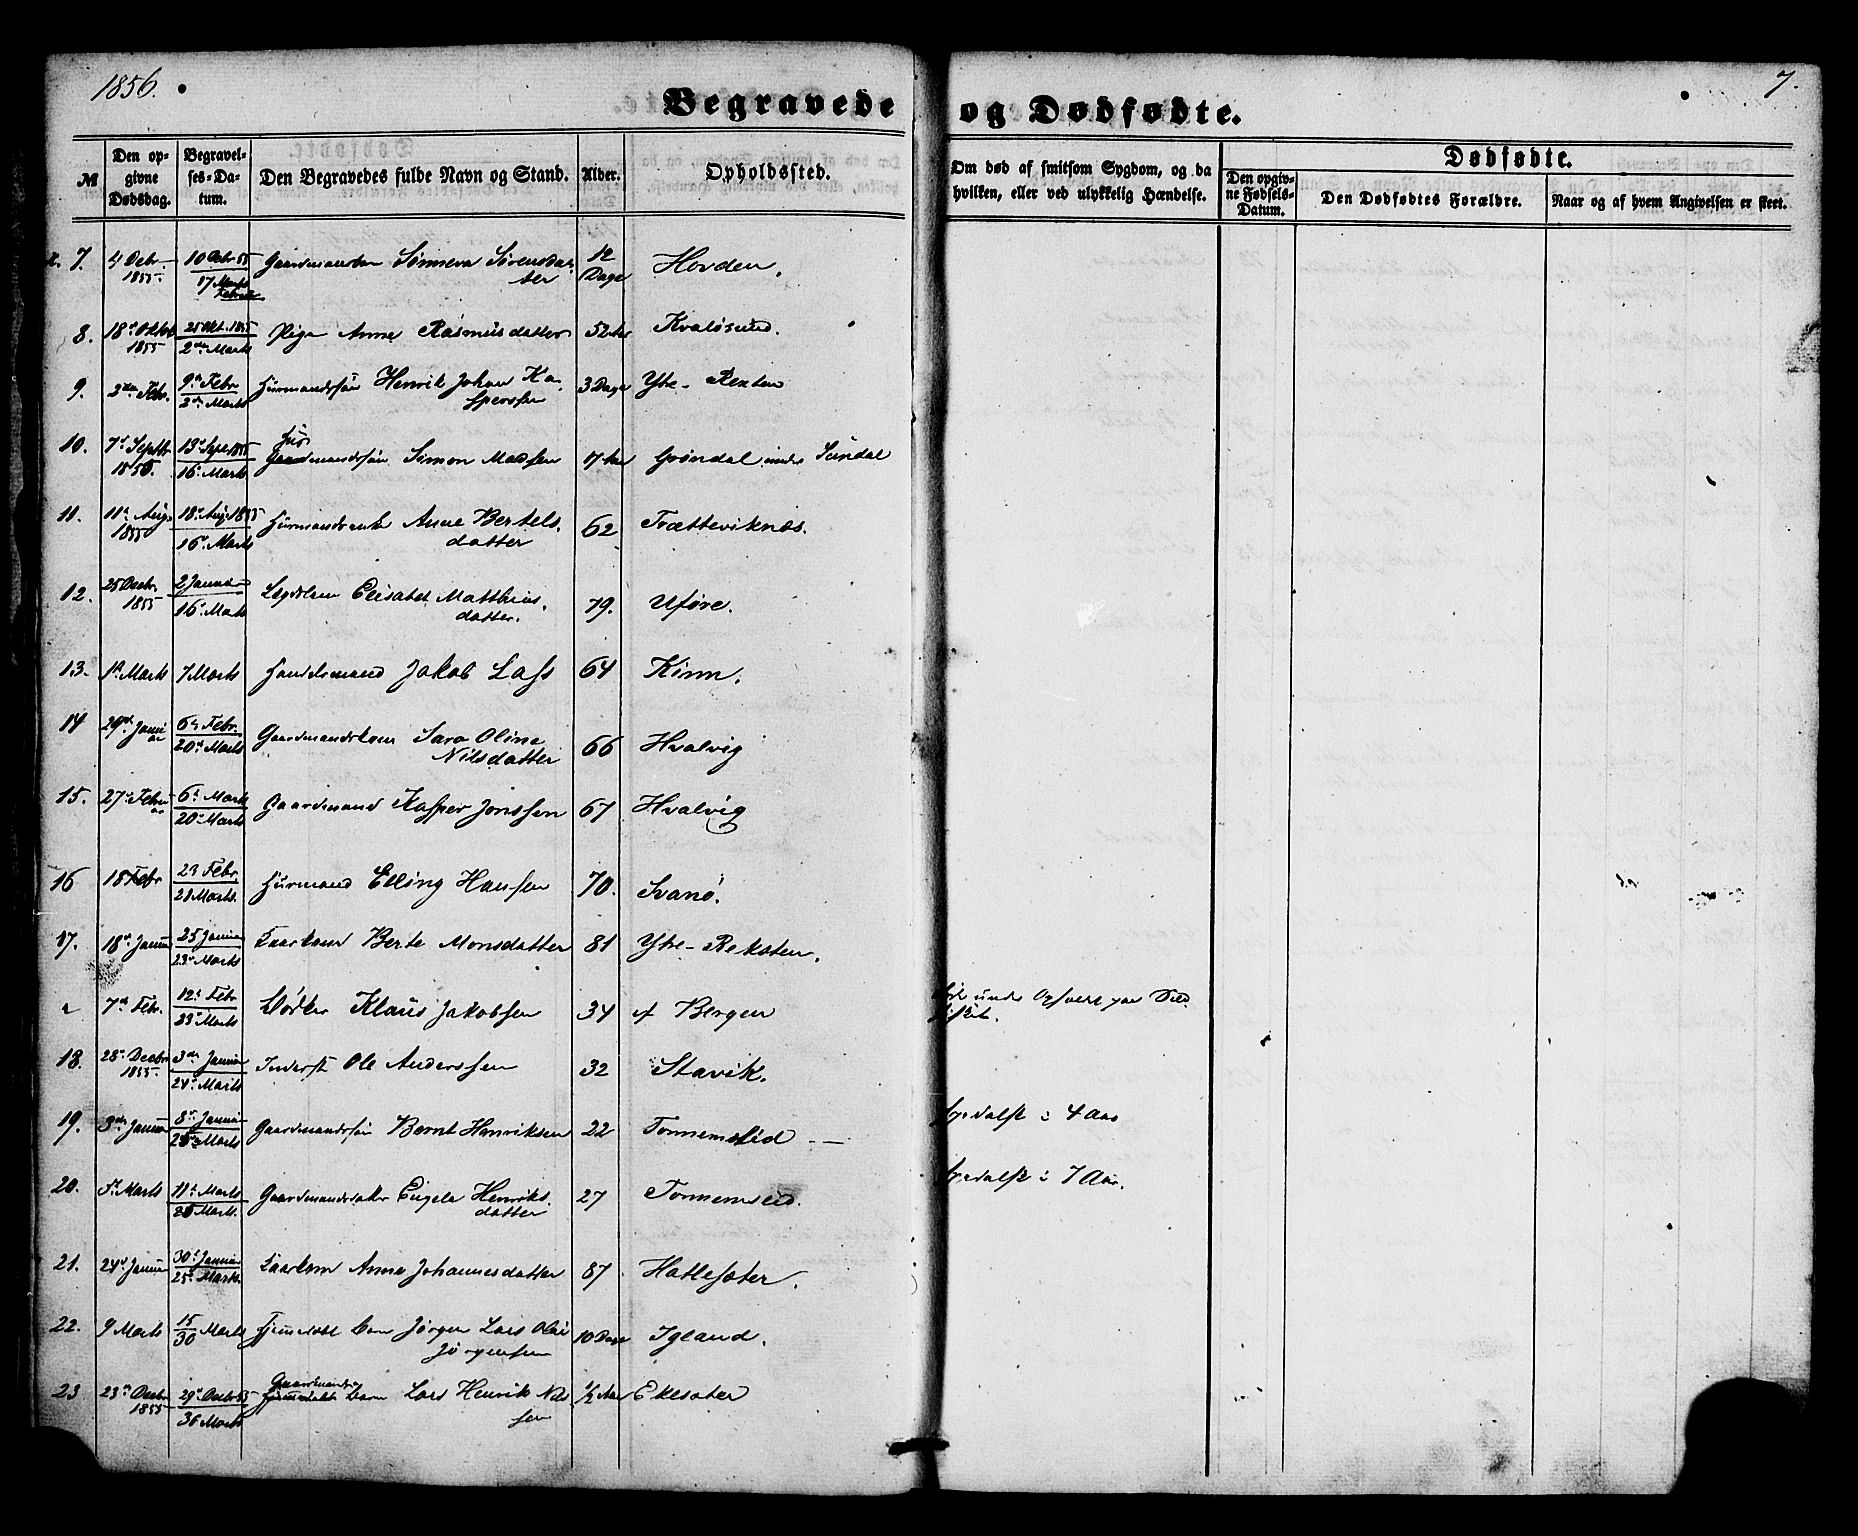 1856.
7.
Begravede og Dødfødte.
№
Den opgivne Dødsdag.
Begravelses-Datum.
Den Begravedes fulde Navn og Stand.
Alder.
Opholdssted.
Om død af smitsom Sygdom, og da hvilken, eller ved ulykkelig Hændelse.
Dødfødte.
Den opgivne Fødsels-Datum.
Den Dødfødtes Forældre.
Naar og af hvem Angivelsen er skeet.
7. 4 Debr 1855. 10 Debr 55 17 Marts Sønneva Sørensdatter 12 Dage Hovden.
8. 18d Oktob 1855 25 Okt. 1855 2den Marts Pige Anne Rasmusdatter 52 Aar Kvaløsund.
9. 2den Febr. 9de Febr 2den Marts Huusmandssøn Henrik Johan Kasperssen 3 Dage Ytre-Rexten
10. 7d Septbr 13d Sept 1855 16d Marts Huusmandssøn Simon Madsen 17 Aar Grøndal under Sundal
11. 11te Aug 1855 18d Aug 1855 16d Marts Huusmandsenke Anne Bertelsdatter 62 Trætteviknæs.
12. 25 Decbr. 1855 2 Januar 16d Marts Lægdslem Elisabet Matthiasdatter. 79. Uføre.
13. 1st Marts 7 Marts Handelsmand Jakob Lass 64 Kinn.
14 29d Januar 6te Febr. 20d Marts Gaardmandskone Sara Oline Nilsdatter 66 Hvalvig
15. 27d Februar 6te Marts 20d Marts Gaardmand Kasper Jonssen 67 Hvalvig
16 18 Febr 23 Febr. 21 Marts. Huusmand Elling Hanssen 70. Svanø.
17. 18d Januar 25 Januar 23d Marts Kaarkone Berte Monsdatter 81 Ytre-Reksten.
7de Febr. 12te Febr 23d Marts Bødker Klaus Jakobsen 34 af Bergen under Ophold paa Sildfisket.
18. 28d Decbr 1855. 3die Januar 24d Marts Inderst Ole Anderssen 32 Stavik.
19. 3die Januar 8d Januar 25d Marts Gaardmandssøn Bernt Henriksen 22 Tonnemseid — Spedalsk i 4 Aar
20. 5te Marts 11te Marts 25 Marts. Gaardmandsdatter Engela Henriksdatter 27 Tonnemseid. Spedalsk i 7 Aar.
21. 24d Januar 30d Januar 25d Marts Kaarkone Anne Johannesdatter 87 Hatlesæter.
22. 9 Marts 15/30 Marts Hjemmedøbt Barn Jørgen Lars Olai Jørgenssen 10 Dage Igland.
23 23de Decbr 1855 29d Decbr 55 30 Marts Gaardmands Barn Lars Henrik Nilssen ½ Aar Ekesæter